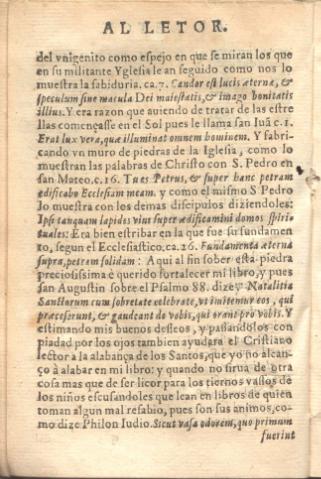 AL LETOR.
del vnigenito como espejo en que se miran los que
en su militante Yglesia le an seguido como nos lo
muestra la sabiduria. ca.7. Candor est lucis æterna, &
speculum sine macula Dei maiestatis, & imago bonitatis
illius. Y era razon que auiendo de tratar de las estre
llas começasse en el Sol pues le llama san Iuã c. 1.
Erat lux vera, quæ illuminat omnem hominem. Y fabri-
cando vn muro de piedras de la Iglesia, como lo
muestran las palabras de Christo con S. Pedro en
san Mateo. c. 16. Tu es Petrus, & super hanc petram
edificabo Ecclesiam meam. y como el mismo S Pedro
lo muestra con los demas discipulos diziendoles:
Ipsi tanquam lapides viui super ædificamini domos spiri-
tuales: Era bien estribar en la que fue su fundamen
to, segun el Ecclesiastico. ca. 26. Fundamenta æterna
supra petram solidam: Aqui al fin sobre esta piedra
preciosissima è querido fortalecer mi libro, y pues
san Augustin sobre el Psalmo 88. dize Natalitia
Sanctorum cum sobrietate celebrate, vt imitemur eos, qui
præcesserunt, & gaudeant de vobis, qui orant pro vobis. Y
estimando mis buenos desseos, y passandolos con
piadad por los ojos tambien ayudara el Cristiano
lector a la alabança de los Santos, que yo no alcan-
ço à alabar en mi libro: y quando no sirua de otra
cosa mas que de ser licor para los tiernos vasos de
los niños escusandoles que lean en libros de quien
toman algun mal resabio, pues son sus animos, co-
mo dize Philon Iudio. Sicut vasa odorem, quo primum
fuerint